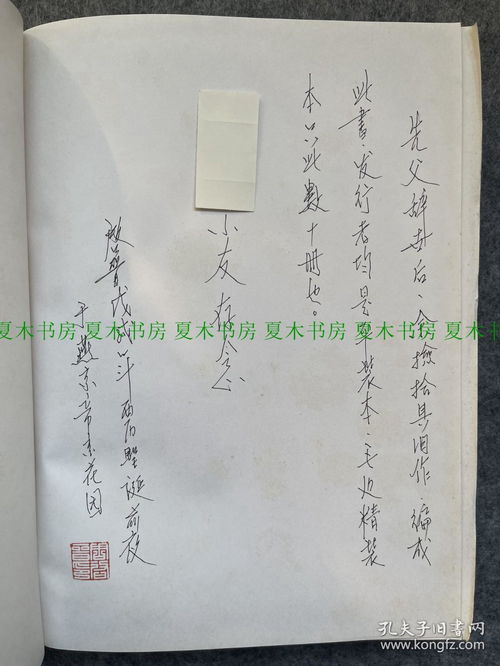 先父辞世后、余检拾其旧作、编成
此书、发行者均是平装本、毛边精装
本只此数十册也。
小友存念
戊戌 西历圣诞前夜
于燕京帝景花园
夏木书房 夏木书房 夏木书房 夏木书房 夏木书房 夏木书房
孔夫子旧书网
www.kongfz.com